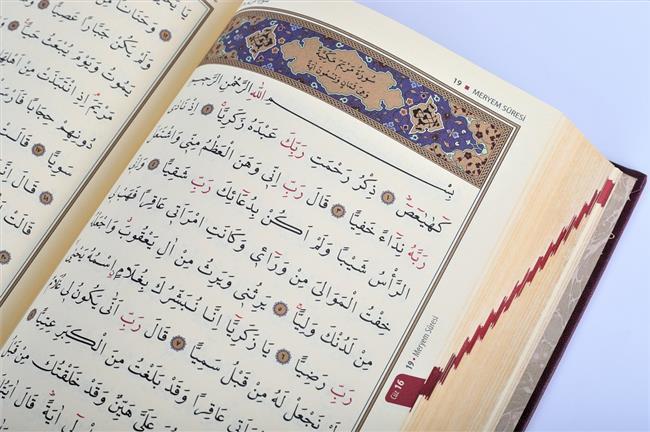 19 ■ MERYEM SÛRESİ
سُورَةُ مَرْيَمَ مَكِّيَّةٌ
وَهِيَ ثَمَانٍ وَتِسْعُونَ اٰيَةً
بِسْمِ اللّٰهِ الرَّحْمٰنِ الرَّحِيمِ
كٓهٰيٰعٓصٓ ١ ذِكْرُ رَحْمَتِ رَبِّكَ عَبْدَهُ زَكَرِيَّا ٢ اِذْ نَادٰى
رَبَّهُ نِدَٓاءً خَفِيًّا ٣ قَالَ رَبِّ اِنّ۪ي وَهَنَ الْعَظْمُ مِنّ۪ي وَاشْتَعَلَ
الرَّأْسُ شَيْبًا وَلَمْ اَكُنْ بِدُعَٓائِكَ رَبِّ شَقِيًّا ٤ وَاِنّ۪ي
خِفْتُ الْمَوَالِيَ مِنْ وَرَٓاء۪ي وَكَانَتِ امْرَاَت۪ي عَاقِرًا فَهَبْ ل۪ي
مِنْ لَدُنْكَ وَلِيًّا ٥ يَرِثُن۪ي وَيَرِثُ مِنْ اٰلِ يَعْقُوبَ وَاجْعَلْهُ
رَبِّ رَضِيًّا ٦ يَا زَكَرِيَّٓا اِنَّا نُبَشِّرُكَ بِغُلَامٍ اسْمُهُ يَحْيٰى
لَمْ نَجْعَلْ لَهُ مِنْ قَبْلُ سَمِيًّا ٧ قَالَ رَبِّ اَنّٰى يَكُونُ ل۪ي غُلَامٌ
امْرَاَت۪ي عَاقِرًا وَقَدْ بَلَغْتُ مِنَ الْكِبَرِ عِتِيًّا
عَلَيَّ هَيِّنٌ وَقَدْ خَلَقْتُكَ مِنْ قَبْلُ
ل۪ٓي اٰيَةً قَالَ
Cüz 16
19 • Meryem Sûresi
وَلَمْ يَكُنْ جَبَّارًا
يَمُوتُ وَيَوْمَ يُبْعَثُ حَيًّا
مَرْيَمَ اِذِ انْتَبَذَتْ مِنْ
دُونِهِمْ حِجَابًا
سَوِيًّا ١٧ قَالَتْ
قَالَ
قَالَتْ